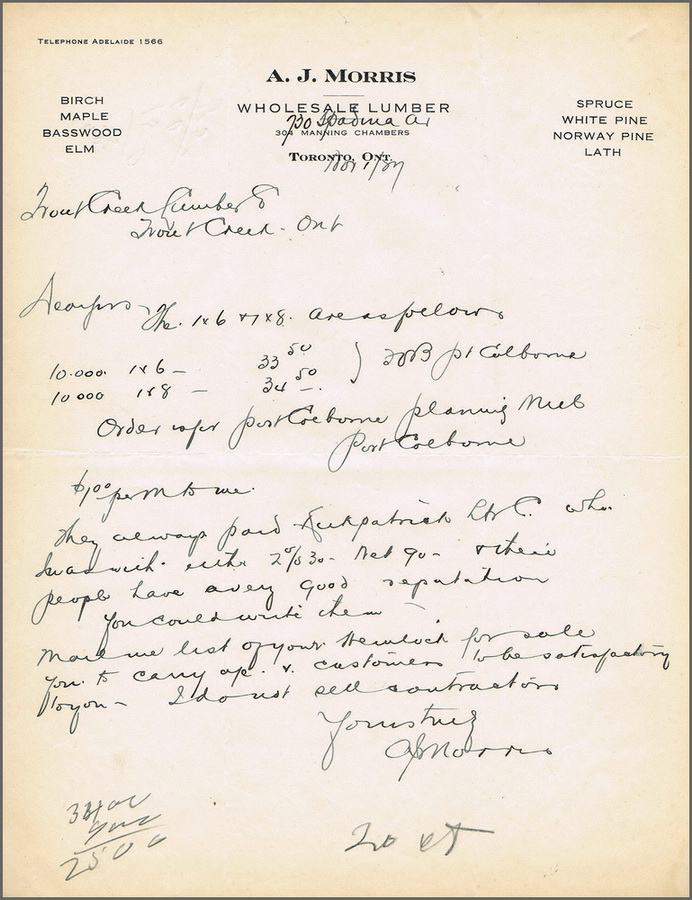 TELEPHONE ADELAIDE 1566
A. J. MORRIS
WHOLESALE LUMBER
730 Spadina Av
304 MANNING CHAMBERS
TORONTO, ONT.
BIRCH
MAPLE
BASSWOOD
ELM
SPRUCE
WHITE PINE
NORWAY PINE
LATH
Trout Creek Lumber Co
Trout Creek - Ont
The 1x6 & 1x8 are as follows
10.000 1x6 - 33 50
10 000 1x8 - 34 50
FOB Pt Colborne
Order is for Port Colborne Planing Mill
Port Colborne
$1.00 per M to me.
They always paid Kirkpatrick L & C. who
I was with either 2% 30 - Net 90 - & their
people have a very good reputation
You could write them -
Mail me list of your Hemlock for sale
you to carry a/c. & customers to be satisfactory
to you - I do not sell contractors
Yours truly
AJ Morris
3400
900
2500